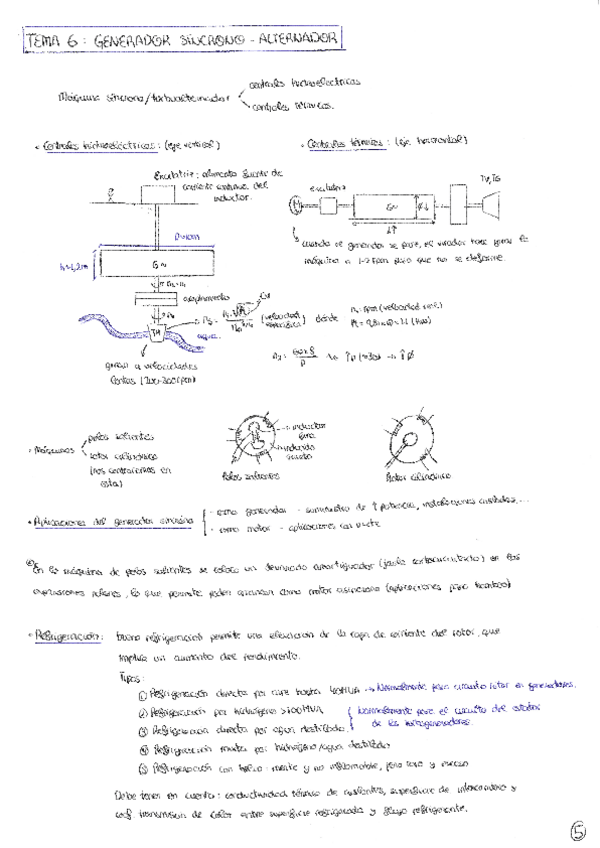 TEMA 6: GENERADOR SÍNCRONO - ALTERNADOR
Máquina síncrona/turboalternador
centrales hidroeléctricas
centrales térmicas.
• Centrales hidroeléctricas: (eje vertical)
• Centrales térmicas: (eje horizontal)
Excitatriz: alimenta fuente de
corriente continua del
inductor.
excitatriz
TV, TG
M
GN
D=10m
h=1,2m
GN
cuando el generador se pare, el virador hace girar la
máquina a 1-2 rpm para que no se deforme.
acoplamiento
TH
agua
(velocidad
específica)
dónde
giran a velocidades
lentas (200-300 rpm)
• Máquinas
polos salientes
rotor cilíndrico
(nos centraremos en
esta)
inductor
gira
inducido
Polos salientes
Rotor cilíndrico
• Aplicaciones del generador síncrono
- como generador - suministro de ↑ potencia, instalaciones aisladas...
- como motor - aplicaciones con
En la máquina de polos salientes se coloca un devanado amortiguador (jaula cortocircuito) en las
expansiones polares, lo que permite poder arrancar como motor asíncrono (aplicaciones para bombeo)
• Refrigeración: buena refrigeración permite una elevación de la capa de corriente del rotor, que
implica un aumento del rendimiento.
Tipos:
① Refrigeración directa por aire hasta 400MVA → Normalmente para circuito rotor en generadores.
② Refrigeración por hidrógeno >100MVA
③ Refrigeración directa por agua destilada.
Normalmente para el circuito del estator
de los turbogeneradores.
④ Refrigeración mixta por hidrógeno/agua destilada
⑤ Refrigeración con helio - inerte y no inflamable, pero caro y escaso
Debe tener en cuenta: conductividad térmica de aislantes, superficie de intercambio y
coef. transmisión de calor entre superficie refrigerada y fluido refrigerante.
5